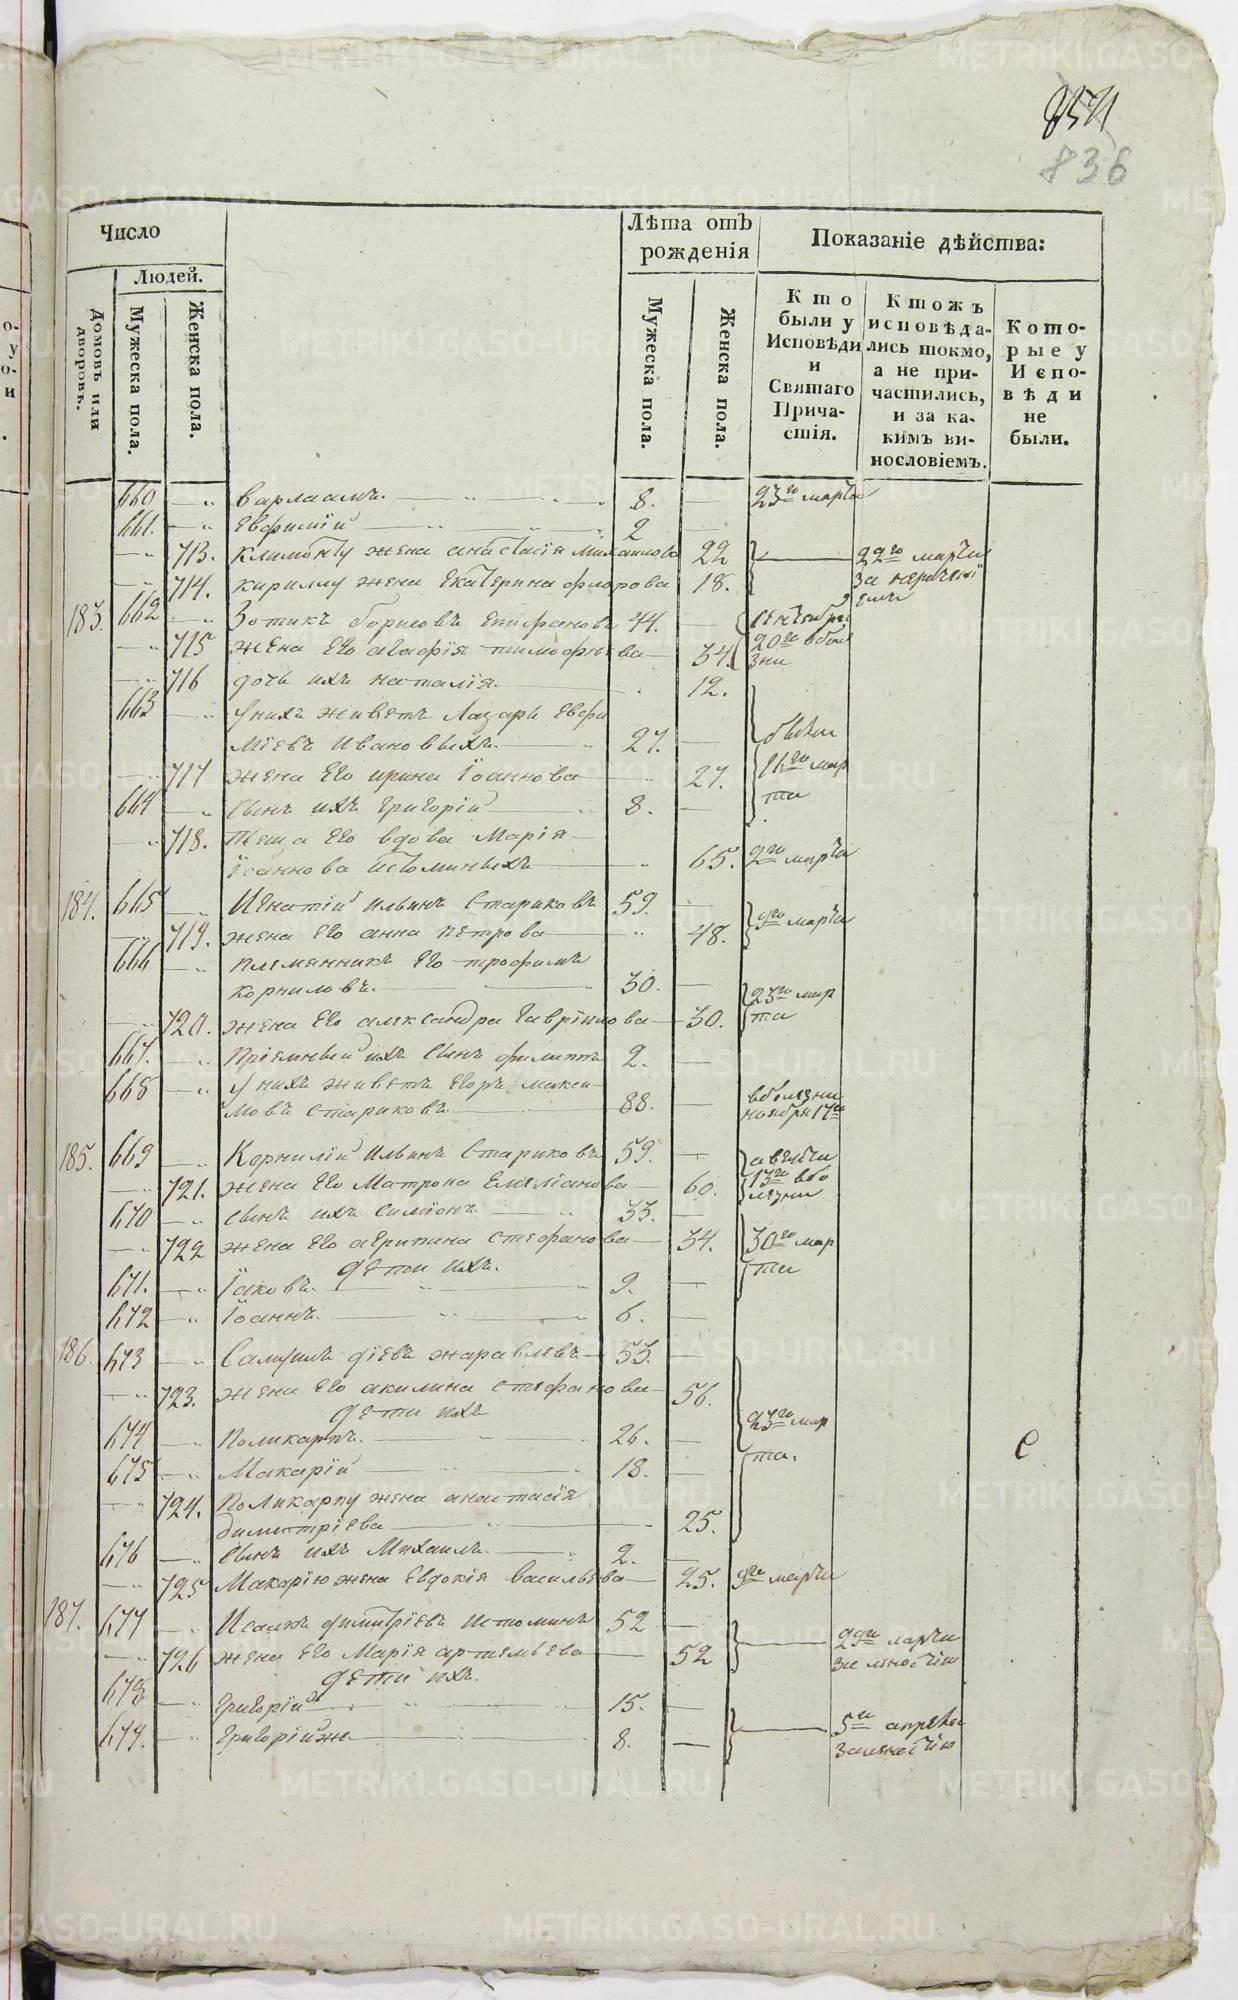 854
836
Число
Лѣта отъ рожденія
Показаніе дѣйства:
Людей.
Домовъ или дворовъ.
Мужеска пола.
Женска пола.
Мужеска пола.
Женска пола.
Кто были у Исповѣди и Святаго Причастія.
Ктожъ исповѣдались токмо, а не причастились, и за какимъ винословіемъ.
Которые у Исповѣди не были.
660 — " Варлаамъ. 8. — 23го марта
661. — " Евфимій 2
— " 713. Климонту жена анастасія Михаилова 22 22го марта
— " 714. кириллу жена Екатерина флорова 18. за
183. 662 — " Зотикъ борисовъ Епифановъ 44. —
— " 715 жена Его агафія тимофѣева 34. 20го вболѣзни
— " 716 дочь ихъ наталія. 12.
663 — " у нихъ живетъ Лазарь Евфи
міевъ Ивановыхъ. 27. —
— " 717 жена Его ирина Іоаннова 27. 16го мар
664 — " сынъ ихъ григорій 8. — та
— " 718. теща Его вдова Марія
Іоаннова Истоминыхъ 65. 2го марта
184. 665 — " Игнатій ильинъ Стариковъ 59. —
— " 719. жена Его анна петрова 48. 9го марта
666 — " племянникъ Его трофимъ
корниловъ. 30. — 23го мар
— " 720. жена Его александра гавріилова 30. та
667. — " пріемный ихъ сынъ филиппъ 2. —
668 — " у нихъ живетъ Егоръ макси
мовъ стариковъ 88. — вболезни ноября 17го
185. 669 — " Корнилій ильинъ Стариковъ 59. — августа
— " 721. жена Его Матрона Емеліанова 60. 13го вбо
670 — " сынъ ихъ симіонъ. 33. — лѣзни
— " 722 жена Его агрипина стефанова 34. 30го мар
дети ихъ. та
671. — " Іаковъ. 9. —
672 — " Іоаннъ. 6. —
186. 673 — " Самуилъ діевъ жаравлевъ 53. —
— " 723. жена Его акилина стефанова 56.
дети ихъ 23го мар
674 — " поликарпъ. 26. —
675 — " Макарій 18. — та.
— " 724. поликарпу жена анастасія
димитріева 25.
676 — " сынъ ихъ Михаилъ. 2. —
— " 725 Макарію жена Евдокія васильева 25. 9го марта
187. 677 — " Исаакъ димитріевъ истоминъ 52 — 29го марта
— " 726 жена Его Марія артемьева 52 за леностію
дети ихъ.
678 — " григорій 15. —
679. — " григорій же 8. — 5го апрѣля
за леностію